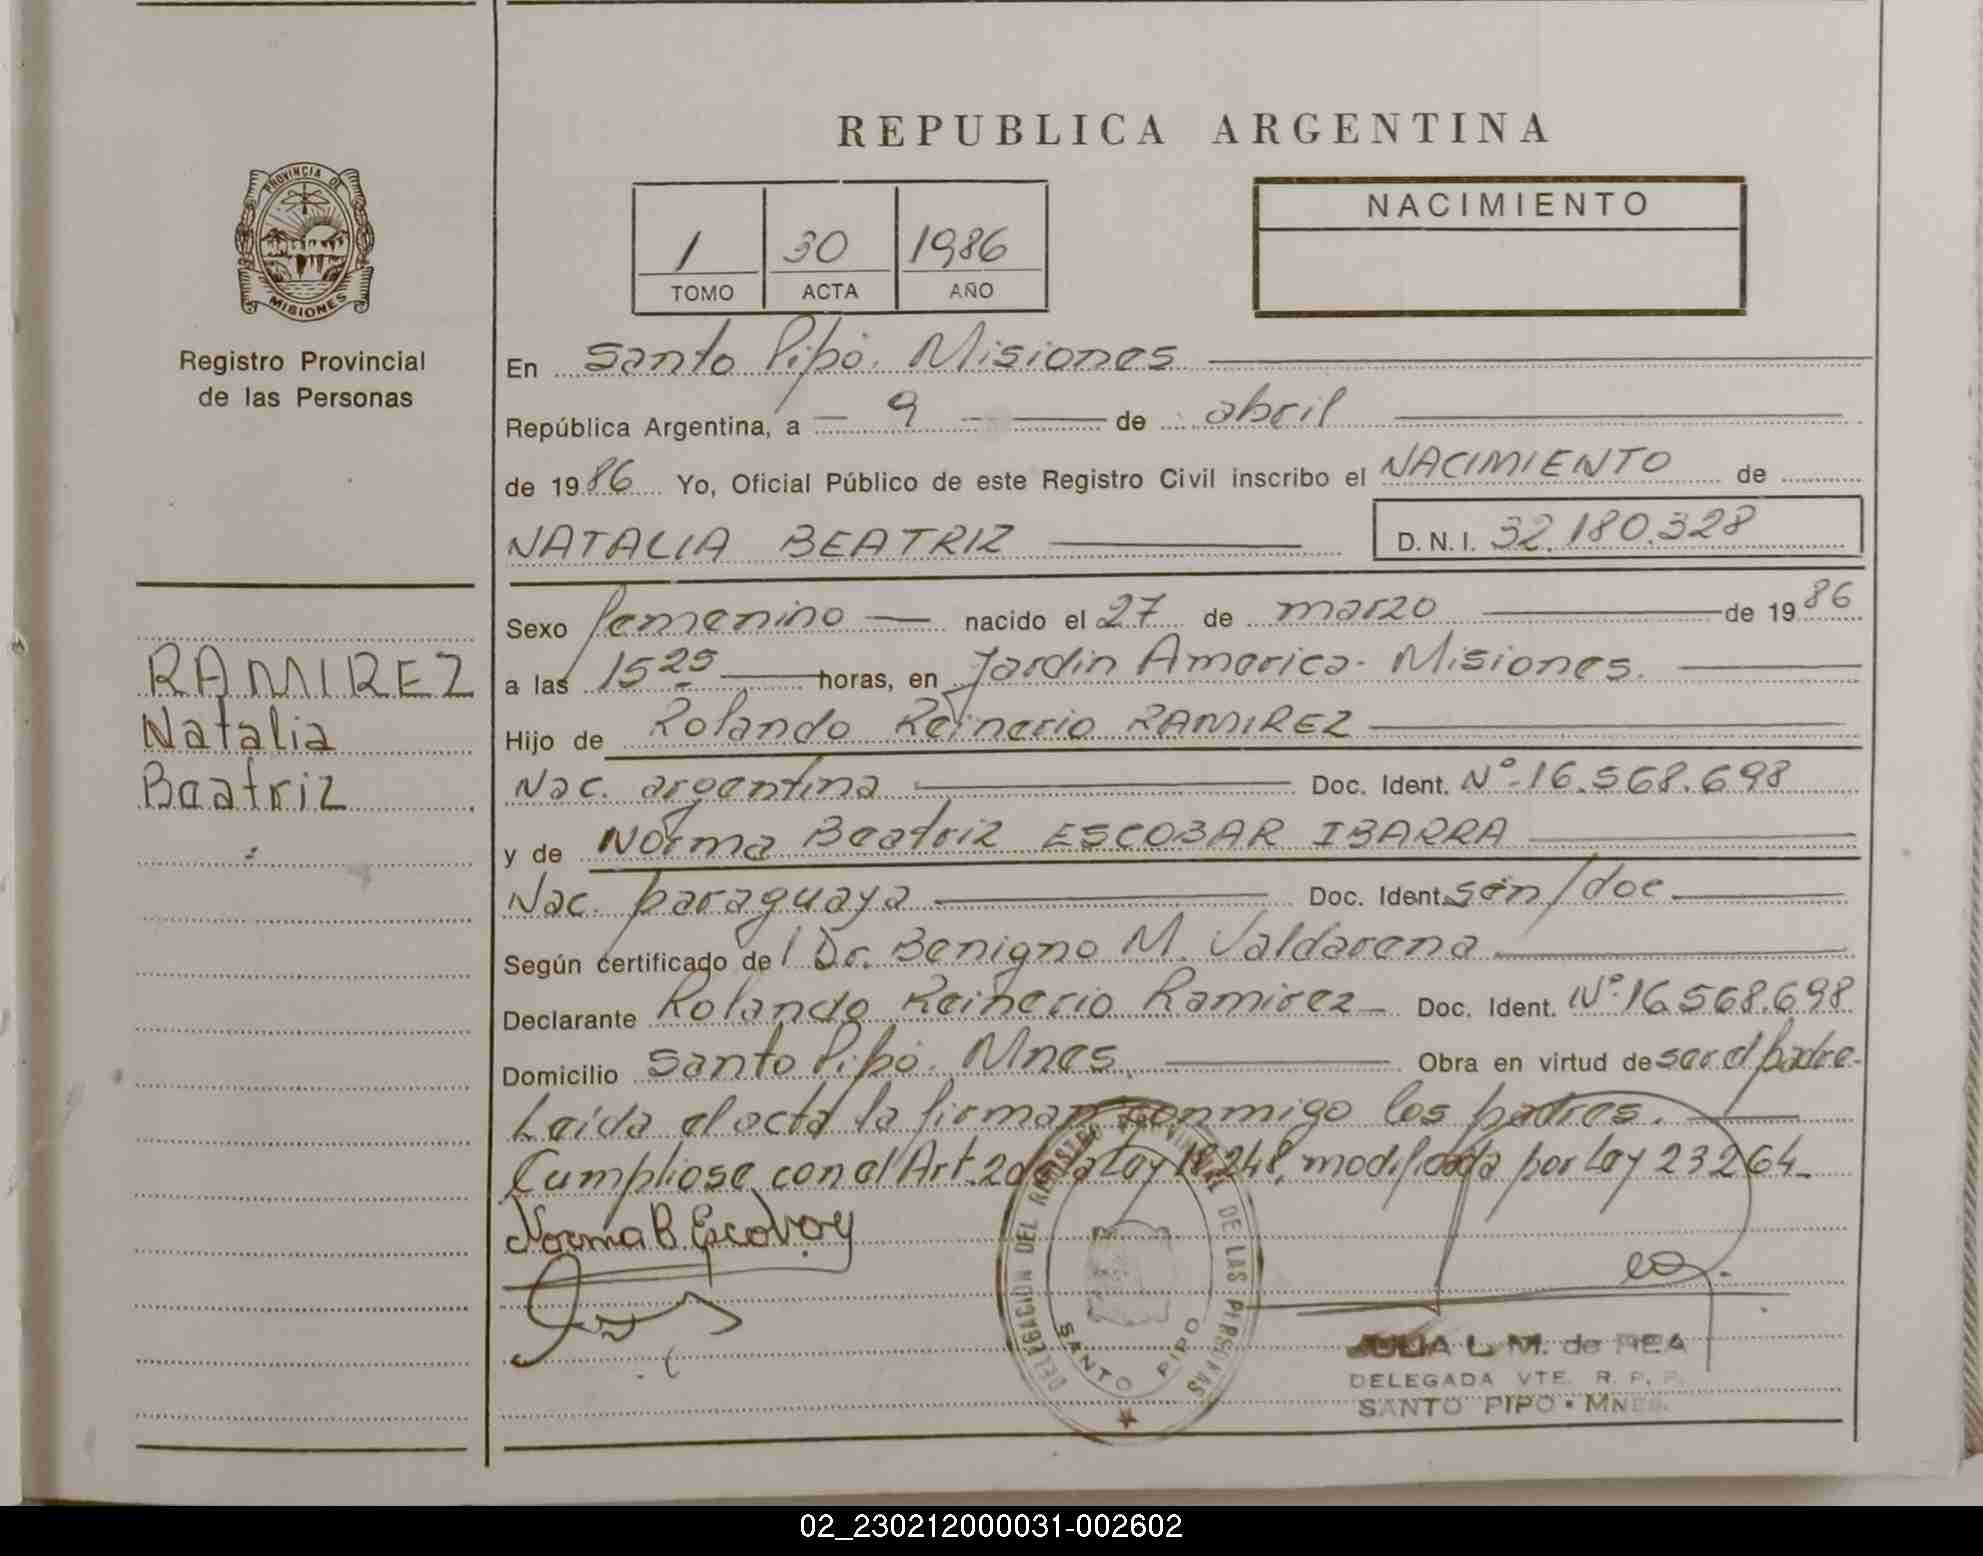 REPUBLICA ARGENTINA
PROVINCIA DE
MISIONES
Registro Provincial
de las Personas
1 30 1986
TOMO ACTA AÑO
NACIMIENTO
En Santo Pipó. Misiones
República Argentina, a 9 de abril
de 1986 Yo, Oficial Público de este Registro Civil inscribo el NACIMIENTO de
NATALIA BEATRIZ D.N.I. 32.180.328
RAMIREZ
Natalia
Beatriz
Sexo femenino nacido el 27 de marzo de 1986
a las 15 25 horas, en Jardin America - Misiones.
Hijo de Rolando Reinerio RAMIREZ
Nac. argentina Doc. Ident. Nº 16.568.698
y de Norma Beatriz ESCOBAR IBARRA
Nac. paraguaya Doc. Ident. sin/doc
Según certificado del Dr. Benigno M. Valdarena
Declarante Rolando Reinerio Ramirez Doc. Ident. Nº 16.568.698
Domicilio Santo Pipó. Mnes. Obra en virtud de ser el padre.
Leída el acta la firman conmigo los padres.
Cumpliose con el Art. 2 de la Ley 18.248, modificada por Ley 23264.
Norma B.
DELEGACION DEL REGISTRO PROVINCIAL DE LAS PERSONAS
SANTO PIPO
JULIA L. M. de REA
DELEGADA VTE. R. P. P.
SANTO PIPO - MNES.
02_230212000031-002602